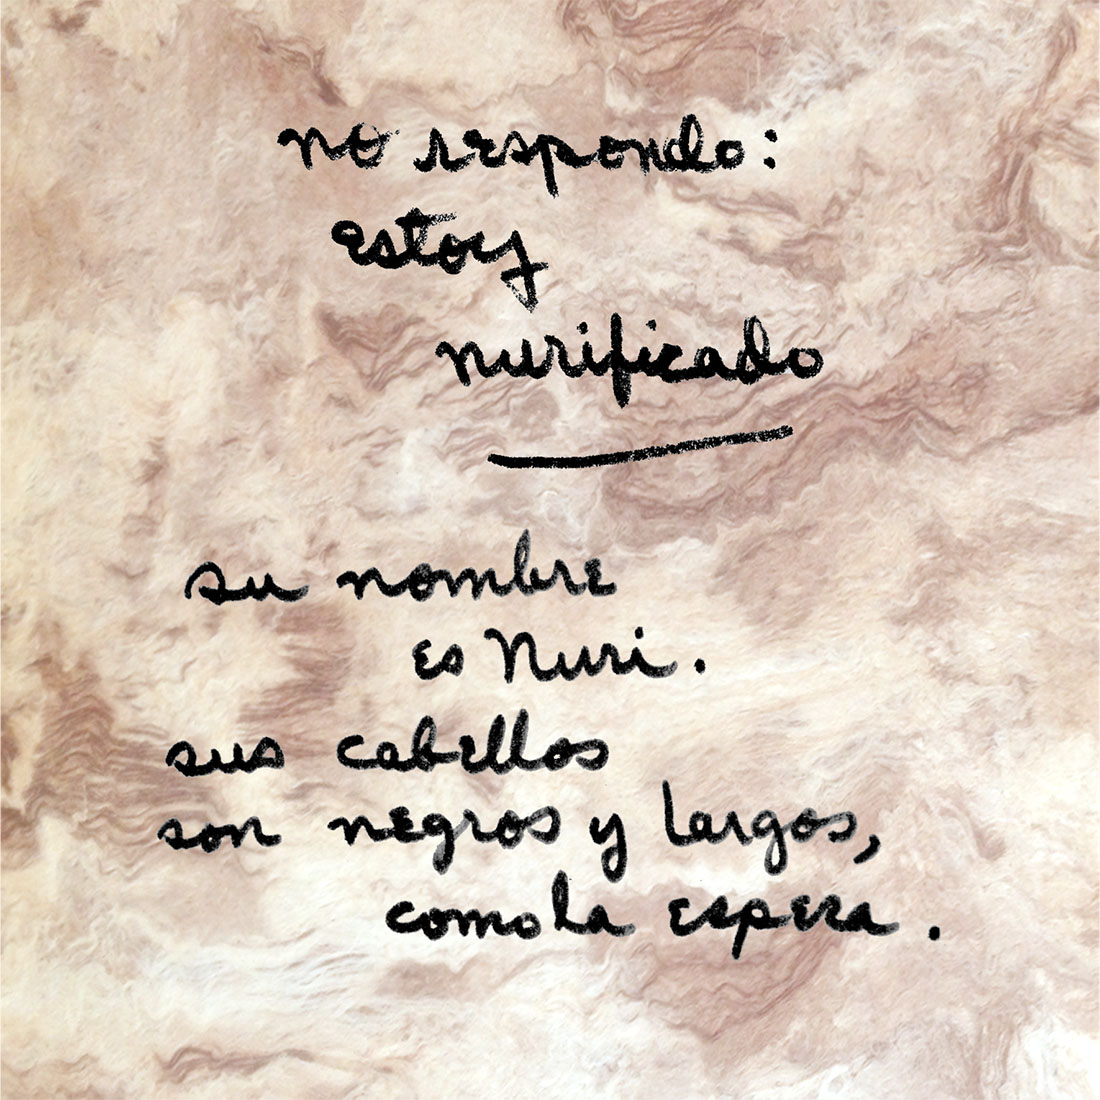 no respondo:
estoy
nurificado
su nombre
es Nuri.
sus cabellos
son negros y largos,
como la espera.